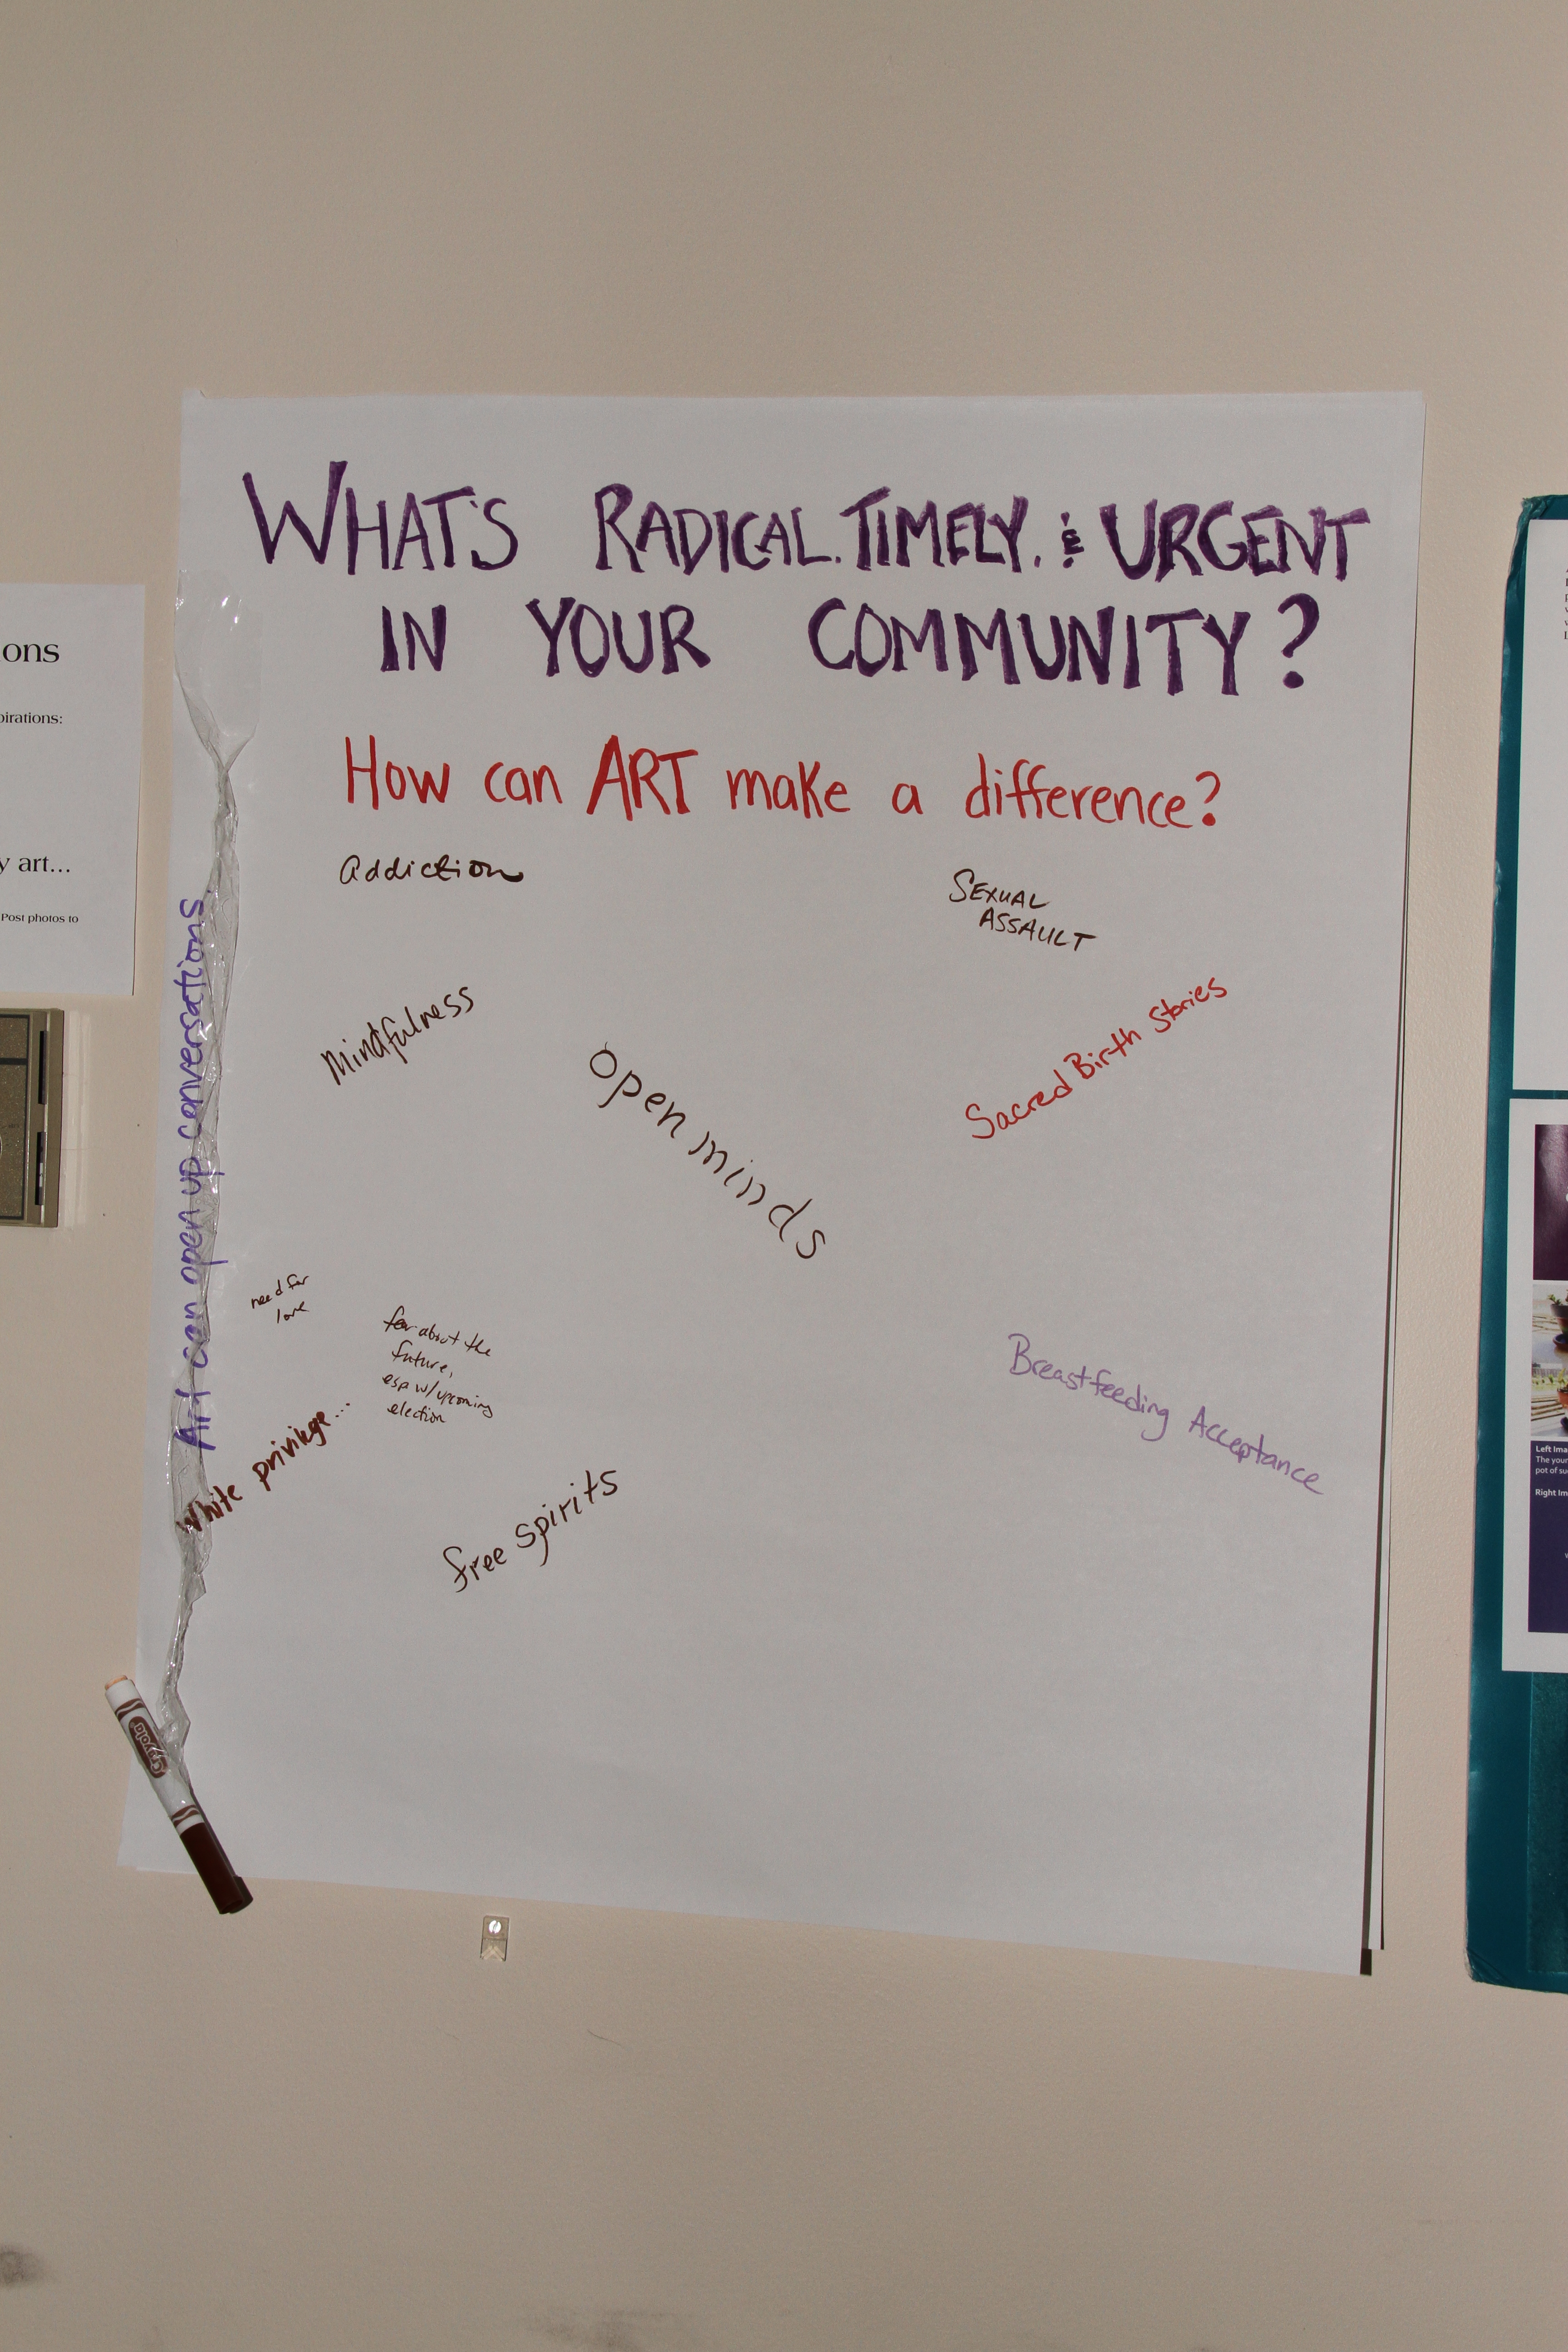 WHAT'S RADICAL. TIMELY. & URGENT
IN YOUR COMMUNITY?
How can ART make a difference?
Addiction
SEXUAL
ASSAULT
Mindfulness
Open minds
Sacred Birth Stories
Art can open up conversations.
need for
love
fear about the
future,
esp w/upcoming
election
White privilege...
free spirits
Breastfeeding Acceptance
Crayola
ons
pirations:
y art...
Post photos to
Left Ima
The your
pot of su
Right Im